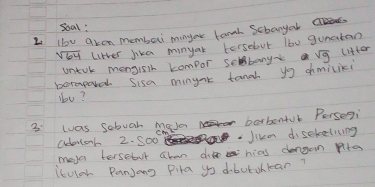 Soal :
2. Ibu akan membeli minyak tanah Sebanyak
√64 Liter jika minyak tersebut Ibu gunakan
untuk mengisi kompor sebanyak √9 Liter
berapakah Sisa minyak tanah yg dimiliki
ibu ?
3. Luas Sebuah meja berbentuk Persegi
adalah 2.500 cm². Jika disekeliling
meja tersebut akan dihias dengan Pita
Panjang Pita yg dibutuhkan ?